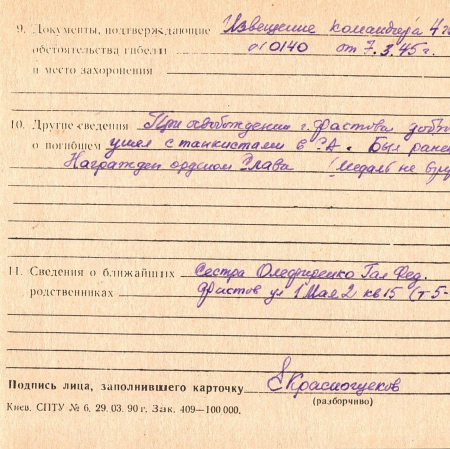 9. Документы, подтверждающие Извещение командира 4 г
обстоятельства гибели 010140 от 7.3.45 г.
и место захоронения
10. Другие сведения При освобождении г. Фастова добр
о погибшем ушел с танкистами в РА. Был ране
Награжден орденом Слава (медаль не вру
11. Сведения о ближайших Сестра Гал Фед.
родственниках Фастов ул 1 Мая 2 кв 15 (т-5-
Подпись лица, заполнившего карточку Красногщеков
(разборчиво)
Киев. СПТУ № 6. 29. 03. 90 г. Зак. 409—100 000.